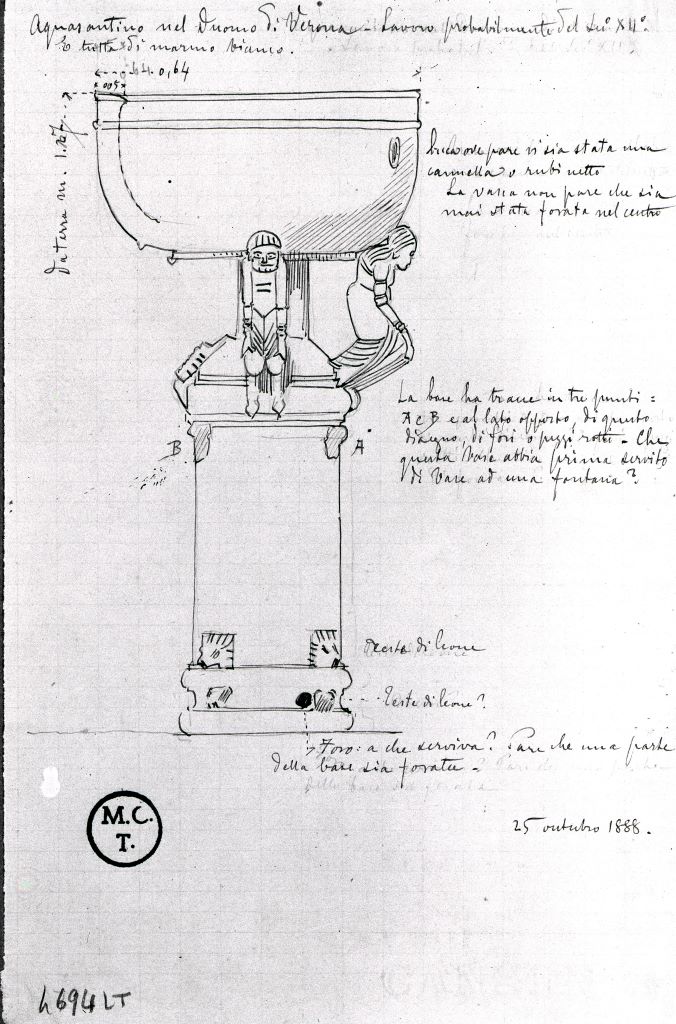 Aquasantino nel Duomo di Verona - Lavoro probabilmente del XII°.
È tutta di marmo bianco.
0,64
005
da terra m. 1.27
buco ove pare vi sia stata una
cannella o rubinetto
La vasca non pare che sia
mai stata forata nel centro
La base ha tracce in tre punti =
A e B e al lato opposto, di questo
disegno, di fori o pezzi rotti - Che
questa base abbia prima servito
di base ad una fontana?
B
A
Teste di leone
Teste di leone?
Foro: a che serviva? Pare che una parte
della base sia forata -
25 outubro 1888.
M.C.
T.
4694 LT